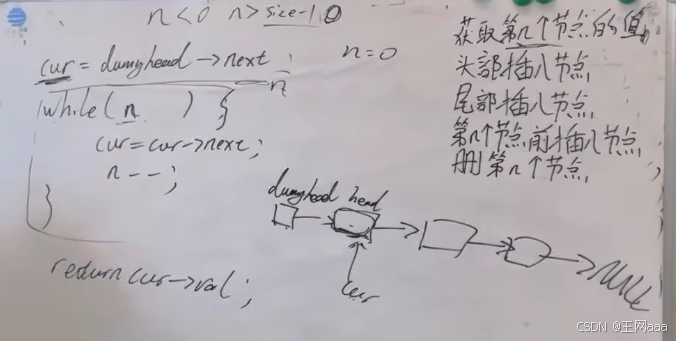 n<0 n>size-1 0
cur = dumyhead->next;
n=0
n
while(n ) {
cur=cur->next;
n--;
}
return cur->val;
获取第n个节点的值
头部插入节点
尾部插入节点
第n个节点前插入节点
删第n个节点
dumyhead head
cur
NULL
CSDN @王网aaa